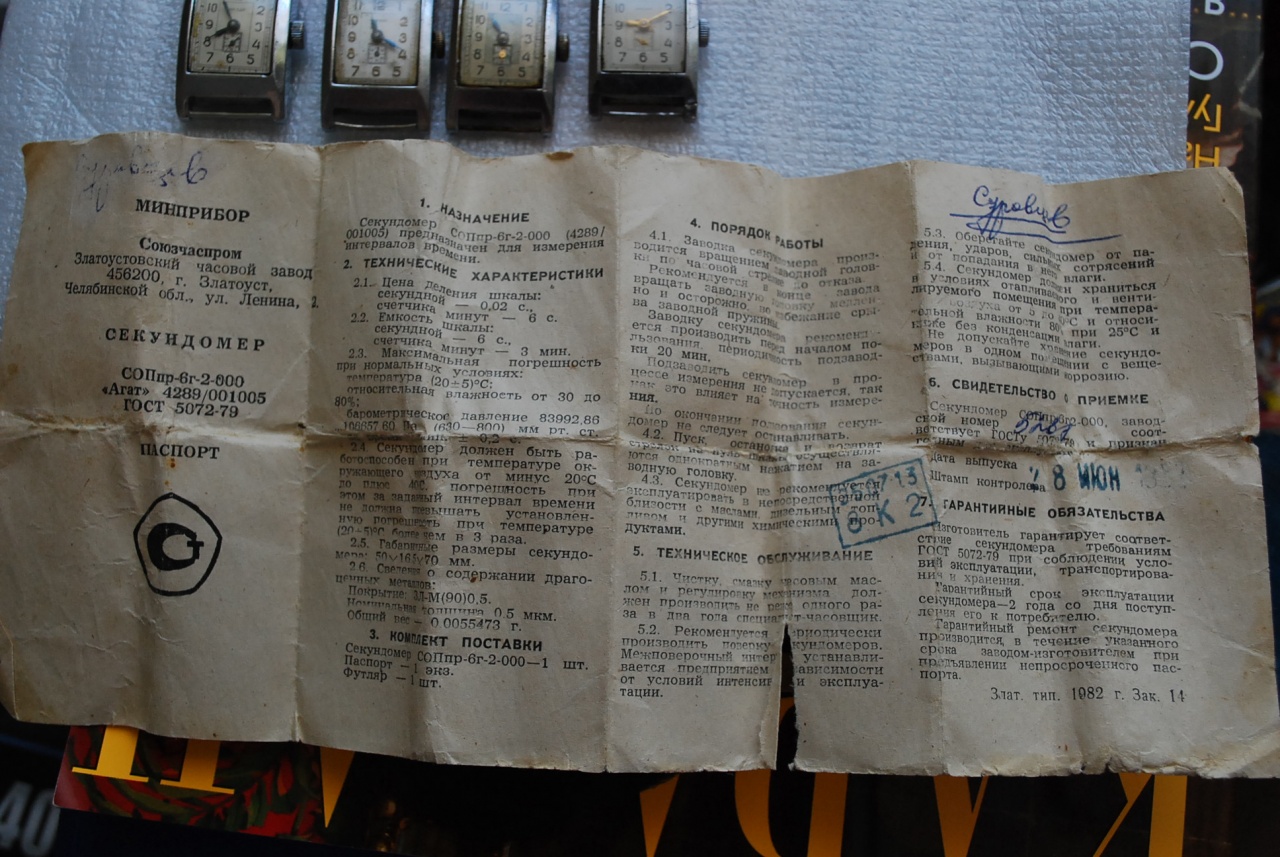 Суровцев
МИНПРИБОР
Союзчаспром
Златоустовский часовой завод
456200, г. Златоуст,
Челябинской обл., ул. Ленина, 2.
СЕКУНДОМЕР
СОПпр-6г-2-000
«Агат» 4289/001005
ГОСТ 5072-79
ПАСПОРТ
1. НАЗНАЧЕНИЕ
Секундомер СОПпр-6г-2-000 (4289/
001005) предназначен для измерения
интервалов времени.
2. ТЕХНИЧЕСКИЕ ХАРАКТЕРИСТИКИ
2.1. Цена деления шкалы:
секундной — 0,02 с.,
счетчика минут — 6 с.
2.2. Емкость шкалы:
секундной — 6 с.,
счетчика минут — 3 мин.
2.3. Максимальная погрешность
при нормальных условиях:
температура (20±5)°С;
относительная влажность от 30 до
80%;
барометрическое давление 83992,86
(630—800) мм рт. ст.
± 0,2 с.
2.4 Секундомер должен быть ра-
ботоспособен при температуре ок-
ружающего воздуха от минус 20°С
до плюс 40С, погрешность при
этом за заданный интервал времени
не должна превышать установлен-
ную погрешность при температуре
(20±5)°С более чем в 3 раза.
2.5. Габаритные размеры секундо-
мера: 50×165×70 мм.
2.6. Сведения о содержании драго-
ценных металлов:
Покрытие: ЗЛ-М(90)0,5.
Номинальная толщина 0,5 мкм.
Общий вес — 0,0055473 г.
3. КОМПЛЕКТ ПОСТАВКИ
Секундомер СОПпр-6г-2-000—1 шт.
Паспорт — 1 экз.
Футляр — 1 шт.
4. ПОРЯДОК РАБОТЫ
4.1. Заводка секундомера произ-
водится вращением заводной голов-
ки по часовой стрелке до отказа.
Рекомендуется в конце завода
вращать заводную головку медлен-
но и осторожно во избежание сры-
ва заводной пружины.
Заводку секундомера рекоменду-
ется производить перед началом по-
льзования, периодичность подзавод-
ки 20 мин.
Подзаводить секундомер в про-
цессе измерения не допускается, так
как это влияет на точность измере-
ния.
По окончании пользования секун-
домер не следует останавливать.
4.2. Пуск, останов и возврат
стрелок на нуль осуществля-
ются однократным нажатием на за-
водную головку.
4.3. Секундомер не рекомендуется
эксплуатировать в непосредственной
близости с маслами, дизельным топ-
ливом и другими химическими про-
дуктами.
5. ТЕХНИЧЕСКОЕ ОБСЛУЖИВАНИЕ
5.1. Чистку, смазку часовым мас-
лом и регулировку механизма дол-
жен производить не реже одного ра-
за в два года специалист-часовщик.
5.2. Рекомендуется периодически
производить поверку секундомеров.
Межповерочный интер устанавли-
вается предприятием зависимости
от условий интенсив и эксплуа-
тации.
Суровцев
5.3. Оберегайте секундомер от па-
дения, ударов, сильных сотрясений
и от попадания в него влаги.
5.4. Секундомер должен храниться
в условиях отапливаемого и венти-
лируемого помещения при темпера-
воздуха от 5 до °С и относи-
тельной влажности 80% при 25°С и
ниже без конденсации влаги.
Не допускайте хранение секундо-
меров в одном помещении с веще-
ствами, вызывающими коррозию.
6. СВИДЕТЕЛЬСТВО О ПРИЕМКЕ
Секундомер СОПпр-6г-2-000, завод-
ской номер соот-
ветствует ГОСТу 5072-79 и признан
годным
Дата выпуска
28 ИЮН
Штамп контролера
К 2
7. ГАРАНТИЙНЫЕ ОБЯЗАТЕЛЬСТВА
Изготовитель гарантирует соответ-
ствие секундомера требованиям
ГОСТ 5072-79 при соблюдении усло-
вий эксплуатации, транспортирова-
ния и хранения.
Гарантийный срок эксплуатации
секундомера—2 года со дня поступ-
ления его к потребителю.
Гарантийный ремонт секундомера
производится в течение указанного
срока заводом-изготовителем при
предъявлении непросроченного пас-
порта.
Злат. тип. 1982 г. Зак. 14
40